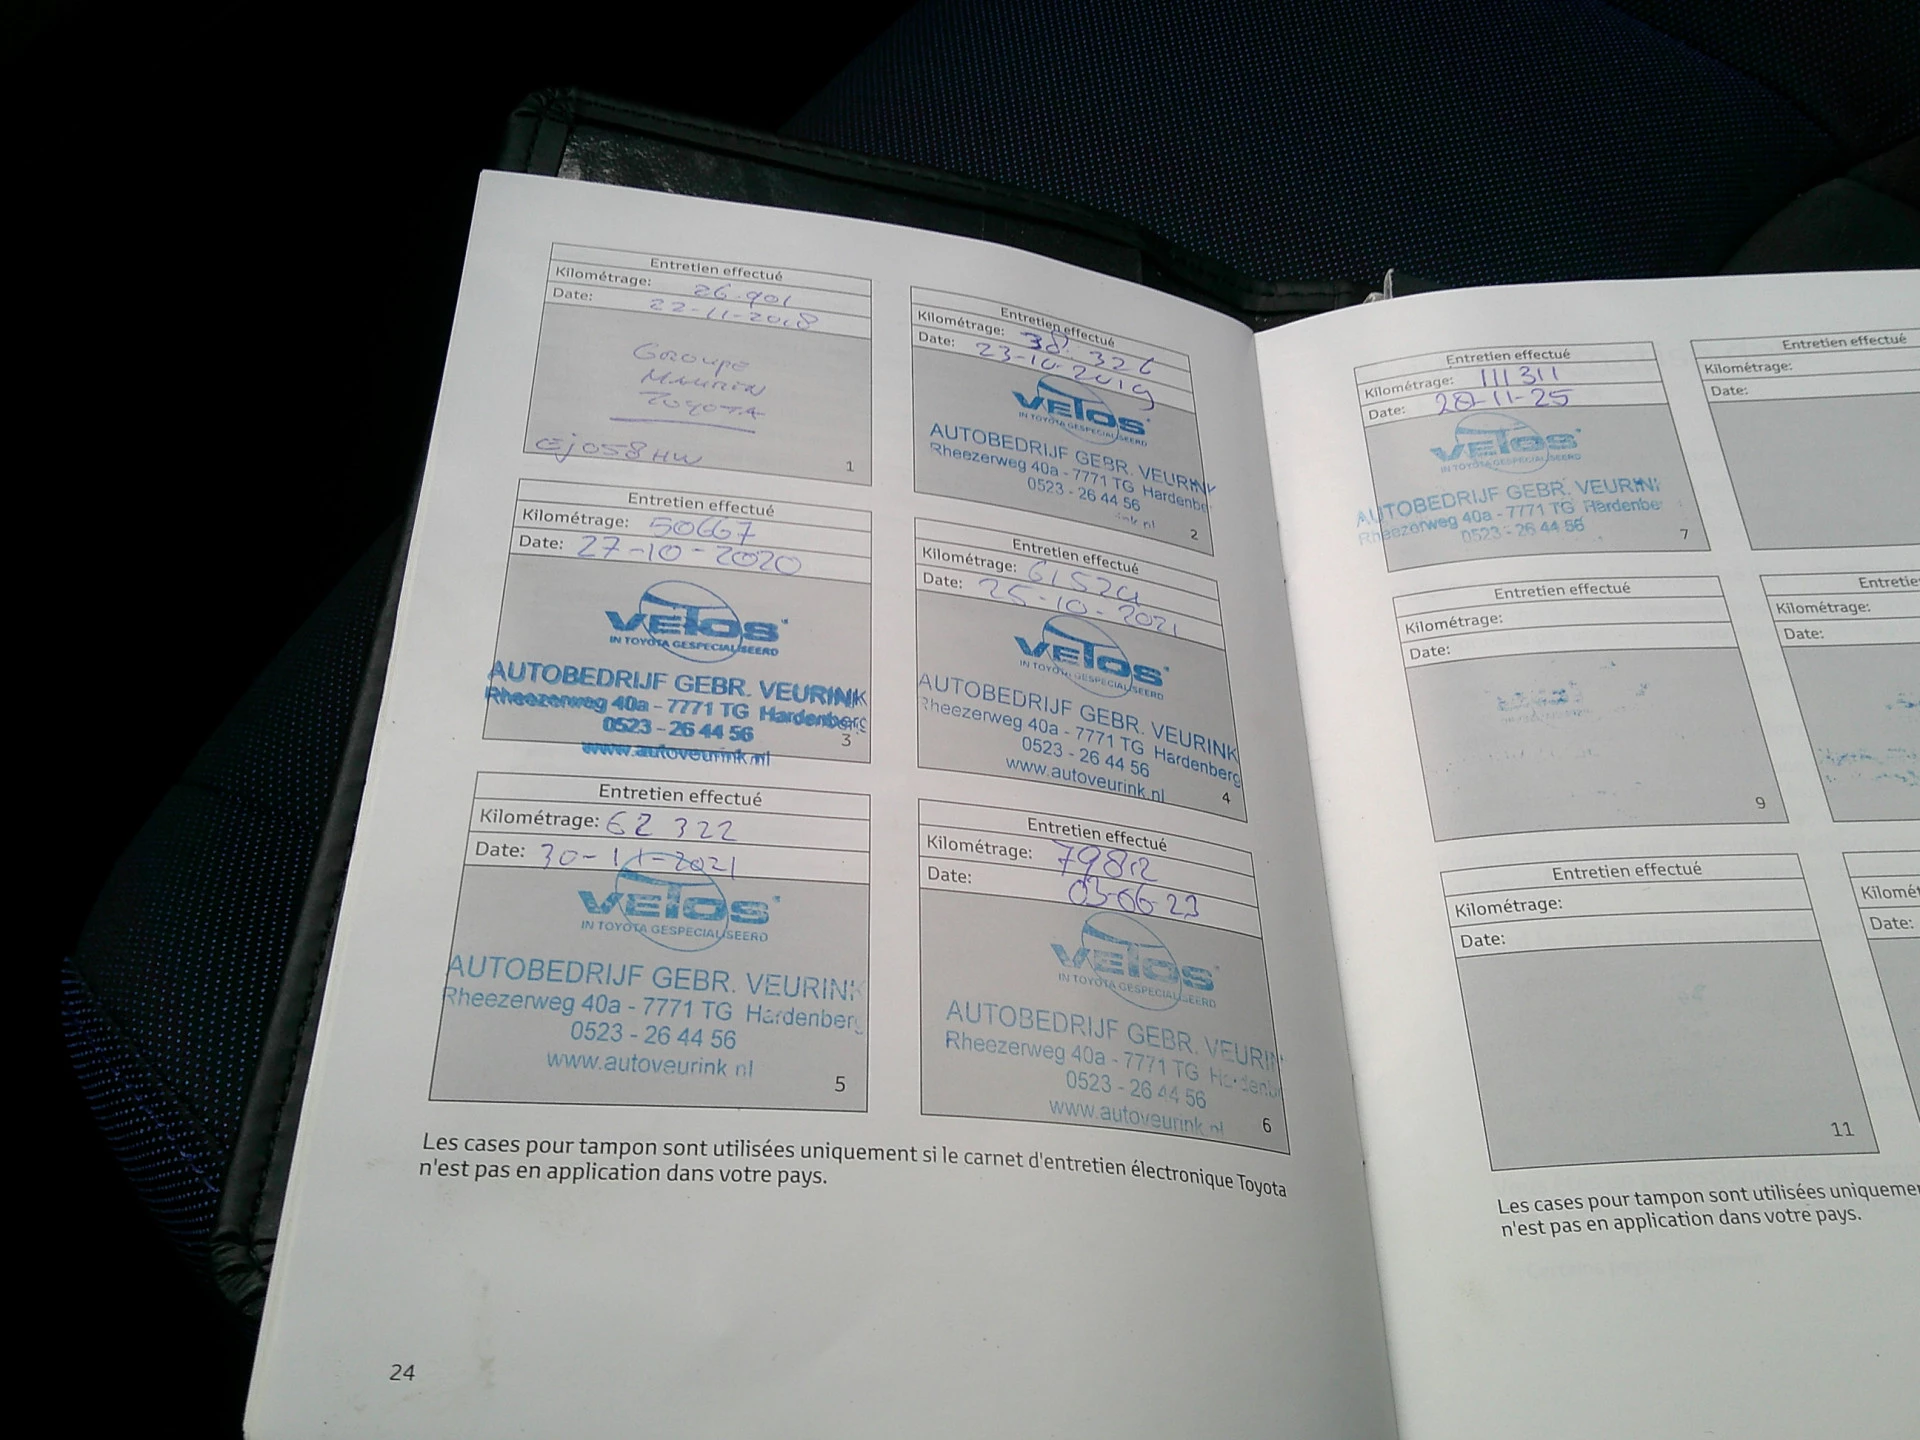 Entretien effectué
Kilométrage: 26.901
Date: 22-11-2018
Groupe
Maurin
Toyota
EJ058HW
1
Entretien effectué
Kilométrage: 38.326
Date: 23-10-2019
VETOS
IN TOYOTA GESPECIALISEERD
AUTOBEDRIJF GEBR. VEURINK
Rheezerweg 40a - 7771 TG Hardenbe
0523 - 26 44 56
ink nl
2
Entretien effectué
Kilométrage: 50667
Date: 27-10-2020
VETOS
IN TOYOTA GESPECIALISEERD
AUTOBEDRIJF GEBR. VEURINK
Rheezerweg 40a - 7771 TG Hardenberg
0523 - 26 44 56
www.autoveurink.nl
3
Entretien effectué
Kilométrage:
Date: 25-10-2021
VETOS
IN TOYOTA GESPECIALISEERD
AUTOBEDRIJF GEBR. VEURINK
Rheezerweg 40a - 7771 TG Hardenberg
0523 - 26 44 56
www.autoveurink.nl
4
Entretien effectué
Kilométrage: 62 322
Date: 30-11-2021
VETOS
IN TOYOTA GESPECIALISEERD
AUTOBEDRIJF GEBR. VEURINK
Rheezerweg 40a - 7771 TG Hardenberg
0523 - 26 44 56
www.autoveurink nl
5
Entretien effectué
Kilométrage: 79812
Date: 03-06-23
VETOS
IN TOYOTA GESPECIALISEERD
AUTOBEDRIJF GEBR. VEURIN
Rheezerweg 40a - 7771 TG Hardenb
0523 - 26 44 56
www.autoveurink.nl
6
Les cases pour tampon sont utilisées uniquement si le carnet d'entretien électronique Toyota
n'est pas en application dans votre pays.
24
Entretien effectué
Kilométrage: 111311
Date: 28-11-25
VETOS
IN TOYOTA GESPECIALISEERD
AUTOBEDRIJF GEBR. VEURINK
Rheezerweg 40a - 7771 TG Hardenbe
0523 - 26 44 56
7
Entretien effectué
Kilométrage:
Date:
Entretien effectué
Kilométrage:
Date:
9
Entretie
Kilométrage:
Date:
Entretien effectué
Kilométrage:
Date:
11
Kilomét
Date:
Les cases pour tampon sont utilisées uniqueme
n'est pas en application dans votre pays.